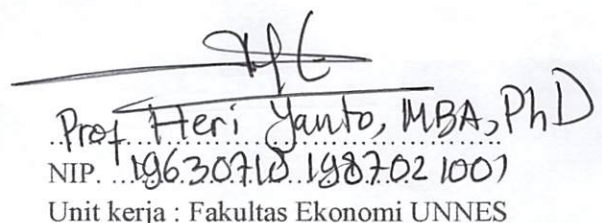 Prof Heri Yanto, MBA, PhD
NIP. 19630718 198702 1001
Unit kerja : Fakultas Ekonomi UNNES